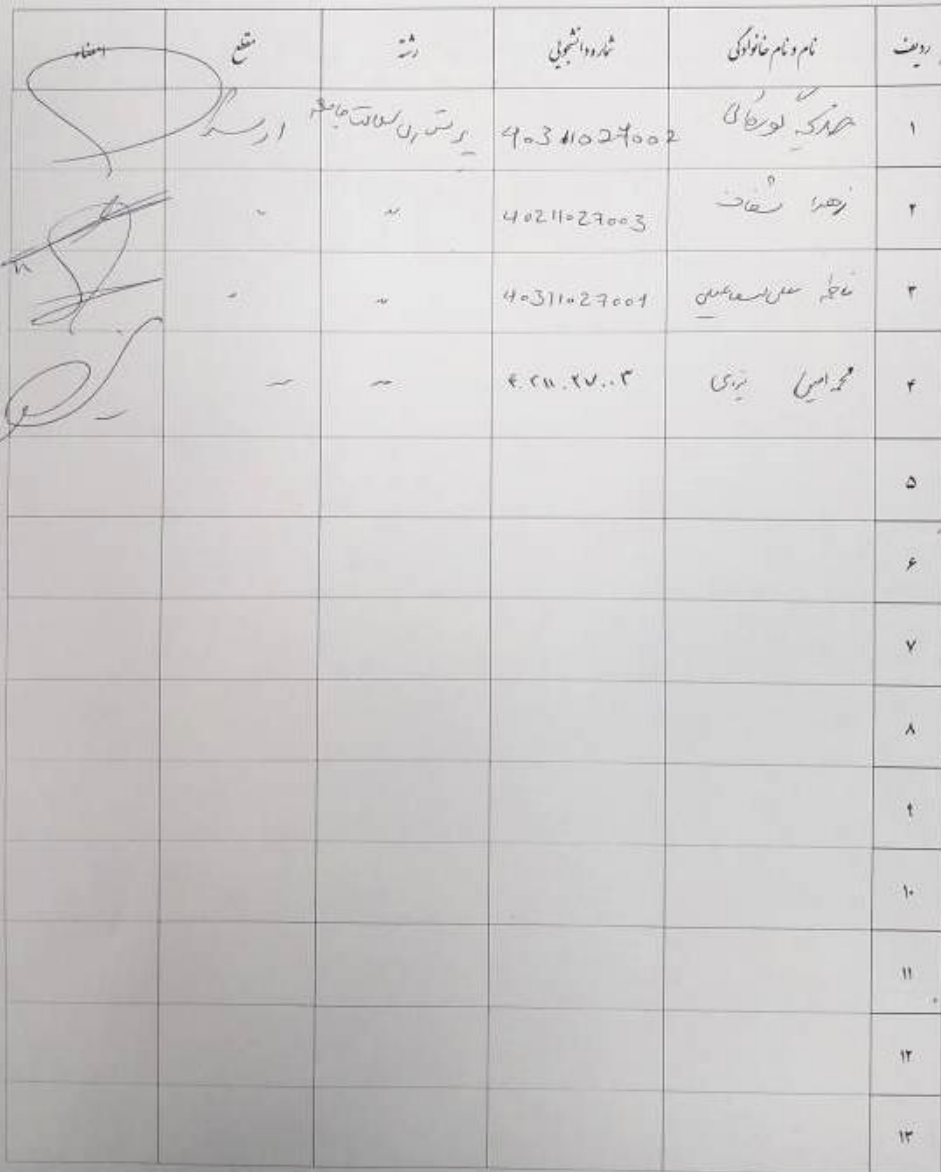 ردیف نام و نام خانوادگی شماره دانشجویی رشته مقطع امضاء
۱ 40311027002 پرستاری سلامت جامعه ارشد
۲ زهرا شفاف 40211027003 " "
۳ فاطمه 40311027001 " "
۴ محمد امین یزدی ۴۰۲۱۱۰۲۷۰۰۴ " "
۵
۶
۷
۸
۹
۱۰
۱۱
۱۲
۱۳